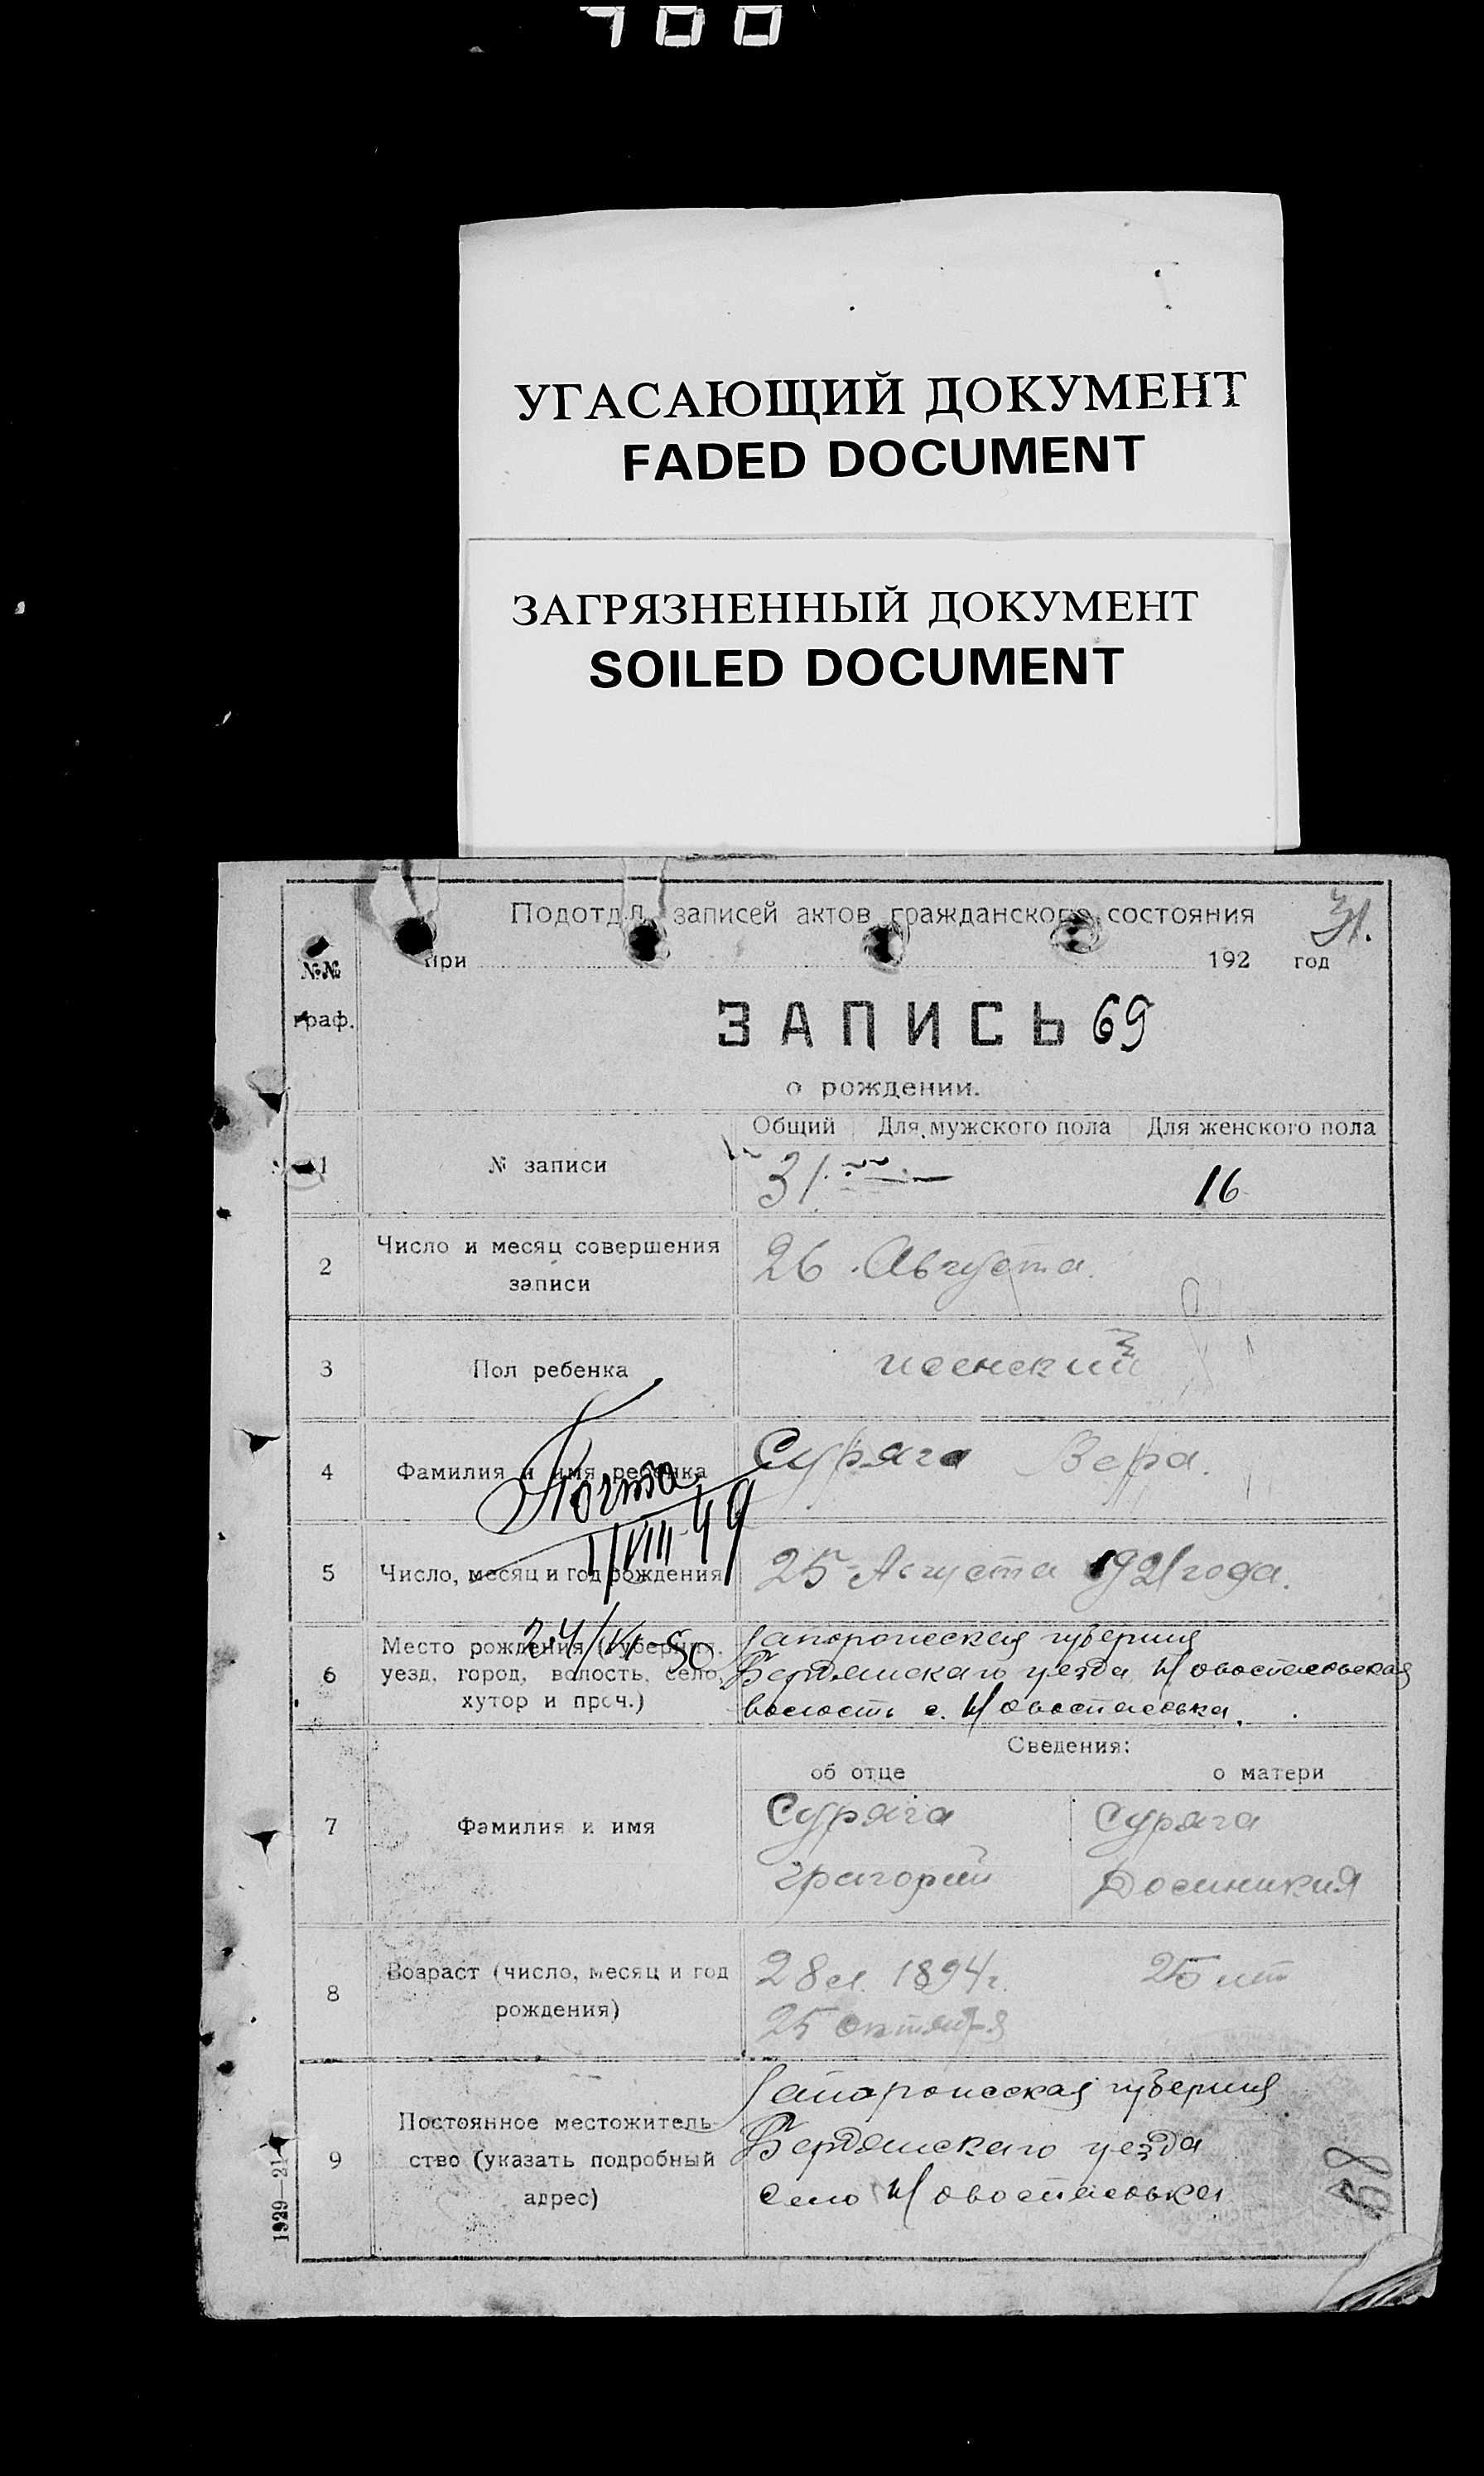 700
УГАСАЮЩИЙ ДОКУМЕНТ
FADED DOCUMENT
ЗАГРЯЗНЕННЫЙ ДОКУМЕНТ
SOILED DOCUMENT
31.
записей актов гражданского состояния
№№ при 192 год
граф.
ЗАПИСЬ 69
о рождении.
Общий Для мужского пола Для женского пола
1 № записи 31. — 16
2 Число и месяц совершения записи 26 Августа.
3 Пол ребенка женский
4 Фамилия и имя ребенка Суряга Вера.
5 Число, месяц и год рождения 25 Августа 1921 года.
24/VI-50
6 Место рождения (губерния, Запорожская губерния
уезд, город, волость, село, Бердянскаго уезда Новоспасовская
хутор и проч.) волость с. Новоспасовка.
Сведения:
об отце о матери
7 Фамилия и имя Суряга Суряга
Григорий
8 Возраст (число, месяц и год 1894г.
рождения) 25 октября
Запорожская губерния
9 Постоянное местожитель- Бердянскаго уезда
ство (указать подробный село Новоспасовка
адрес)